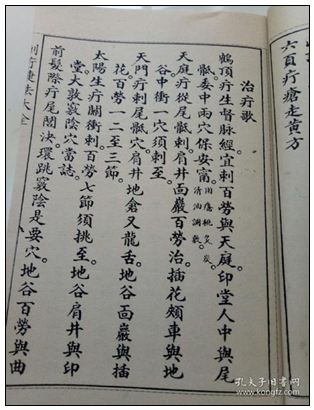 六百疔瘡走黃方
治疔歌
鶴頂疔生督脈經。宜刺百勞與天庭。印堂人中與尾
骶。委中兩穴保安甯。
清油調敷。
天庭疔從尾骶刺。肩井面巖百勞治。插花頰車與地
谷。中衝一穴須刺至。
天門疔刺尾骶穴。肩井地倉又龍舌。地谷面巖與插
花。百勞一二至三節。
太陽生疔關衝刺。百勞七節須挑至。地谷肩井與印
堂。大敦竅陰穴當誌。
前髮際疔尾閭決。環跳竅陰是要穴。地谷百勞與曲
刺疔捷法大全
孔夫子旧书网